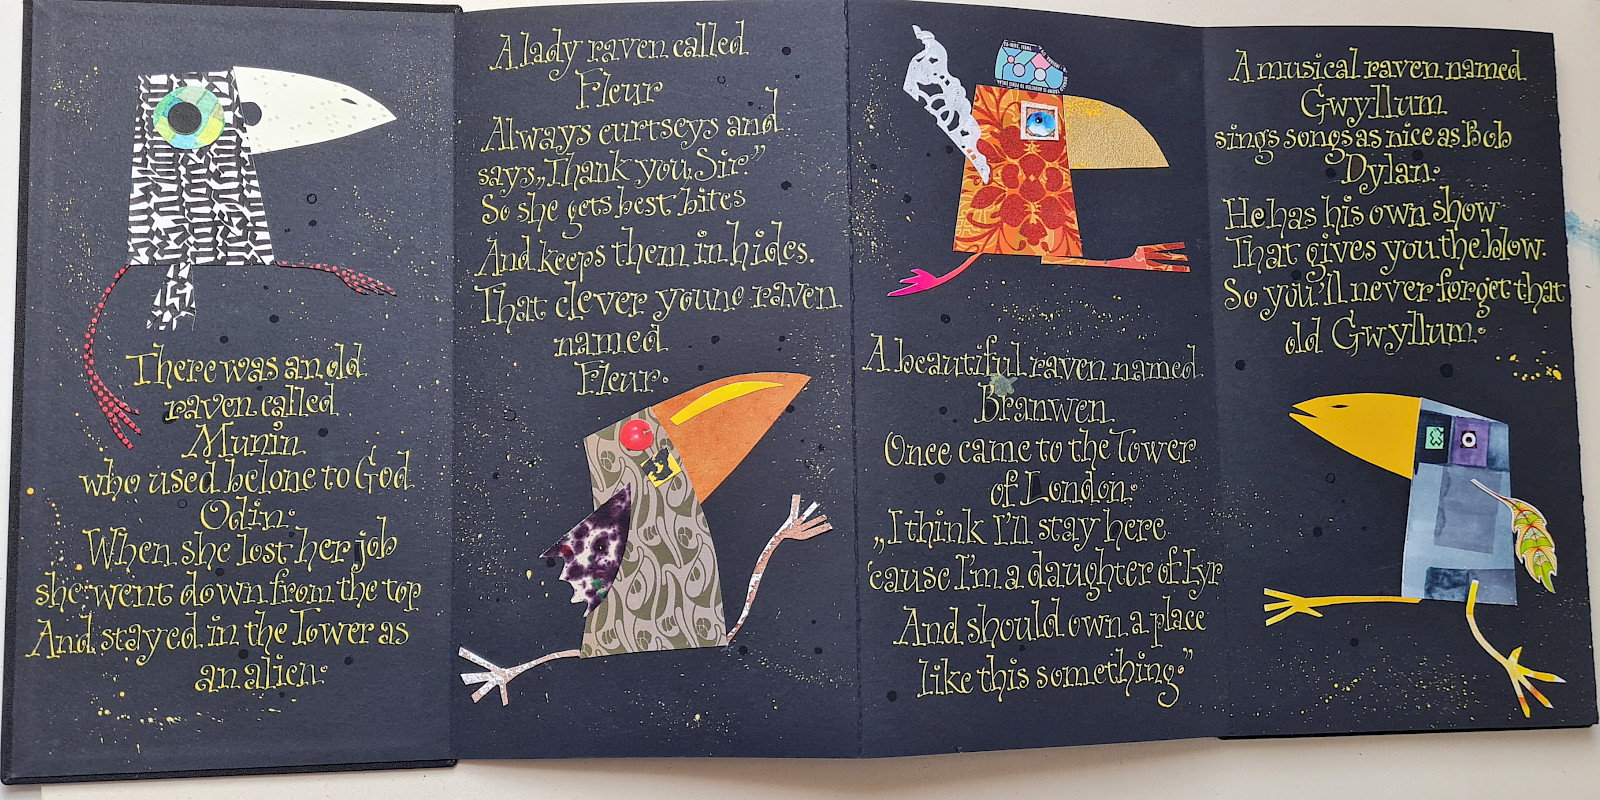 There was an old
raven called
Munin
who used belone to God
Odin.
When she lost her job
she went down from the top
And stayed in the Tower as
an alien.
A lady raven called
Fleur
Always curtseys and
says „Thank you, Sir."
So she gets best bites
And keeps them in hides.
That clever youne raven
named
Fleur.
A beautiful raven named
Branwen
Once came to the Tower
of London.
„I think I'll stay here
'cause I'm a daughter of Lyr
And should own a place
like this something."
A musical raven named
Gwyllum
sings songs as nice as Bob
Dylan.
He has his own show
That gives you the blow.
So you'll never forget that
old Gwyllum.